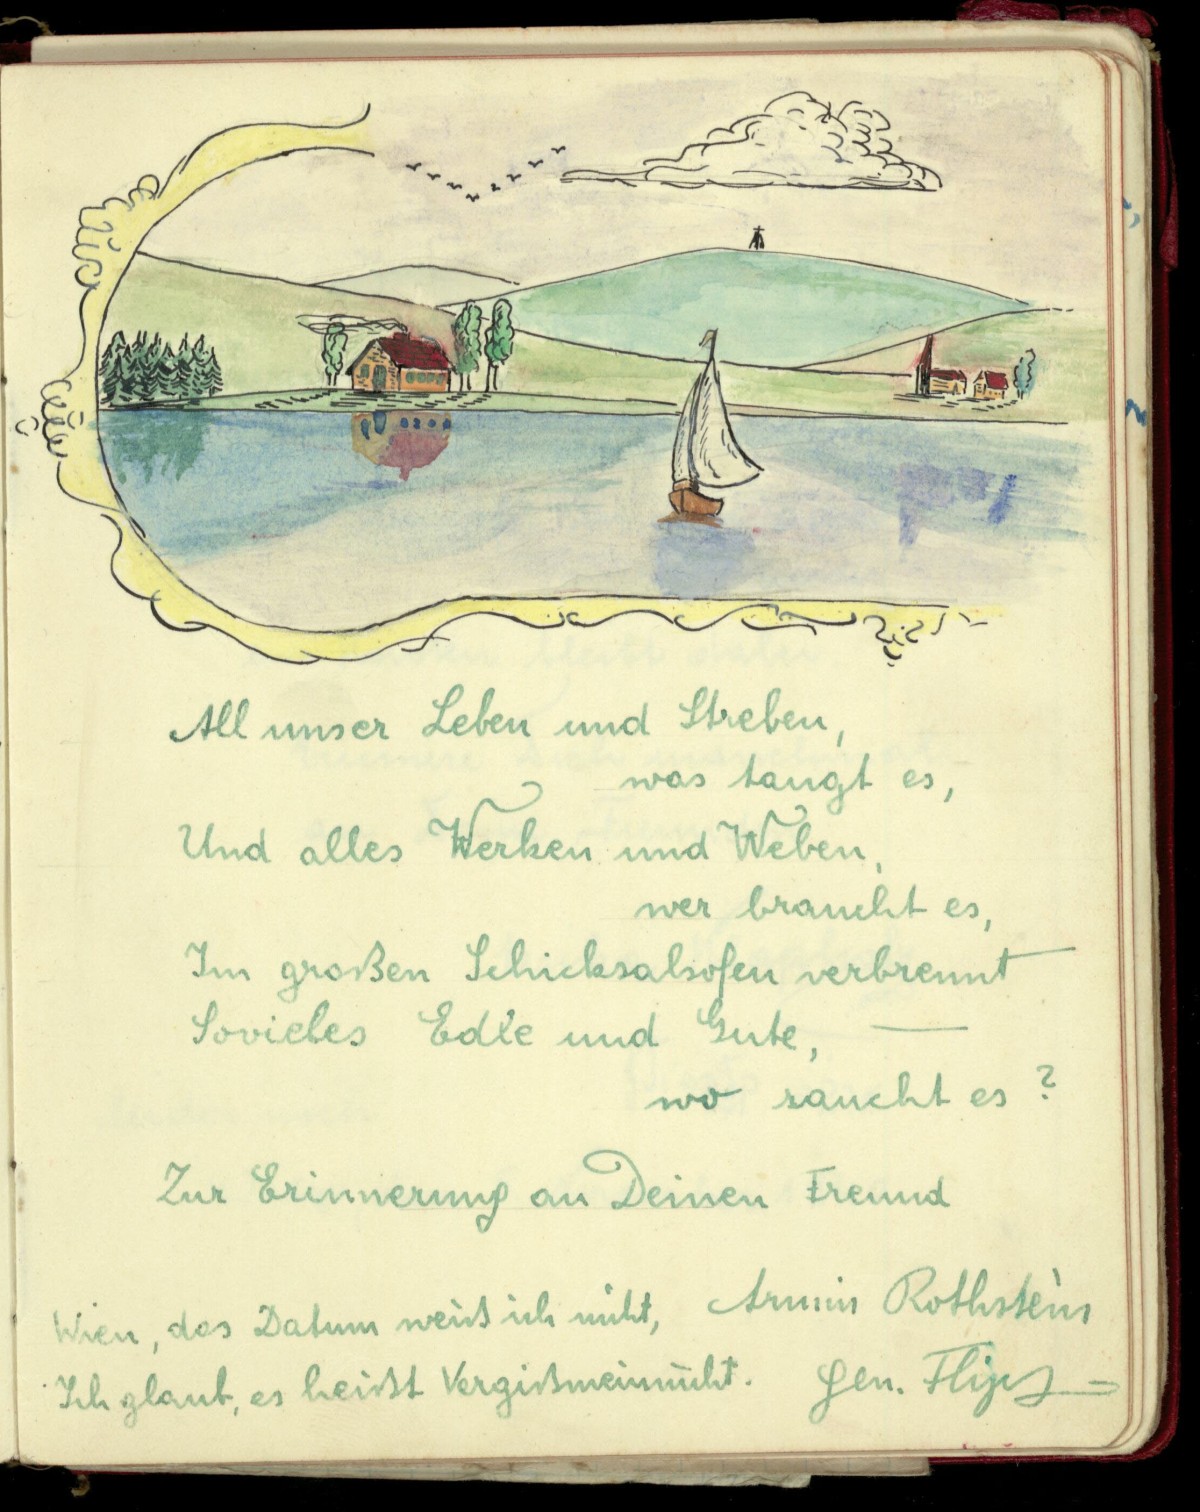 All unser Leben und Streben,
was taugt es,
Und alles Werken und Weben,
wer braucht es,
Im großen Schicksalsofen verbrennt
Sovieles Edle und Gute, —
wo raucht es?
Zur Erinnerung an Deinen Freund
Armin Rothstein
gen. Flips
Wien, das Datum weiß ich nicht,
Ich glaub, es heißt Vergißmeinnicht.